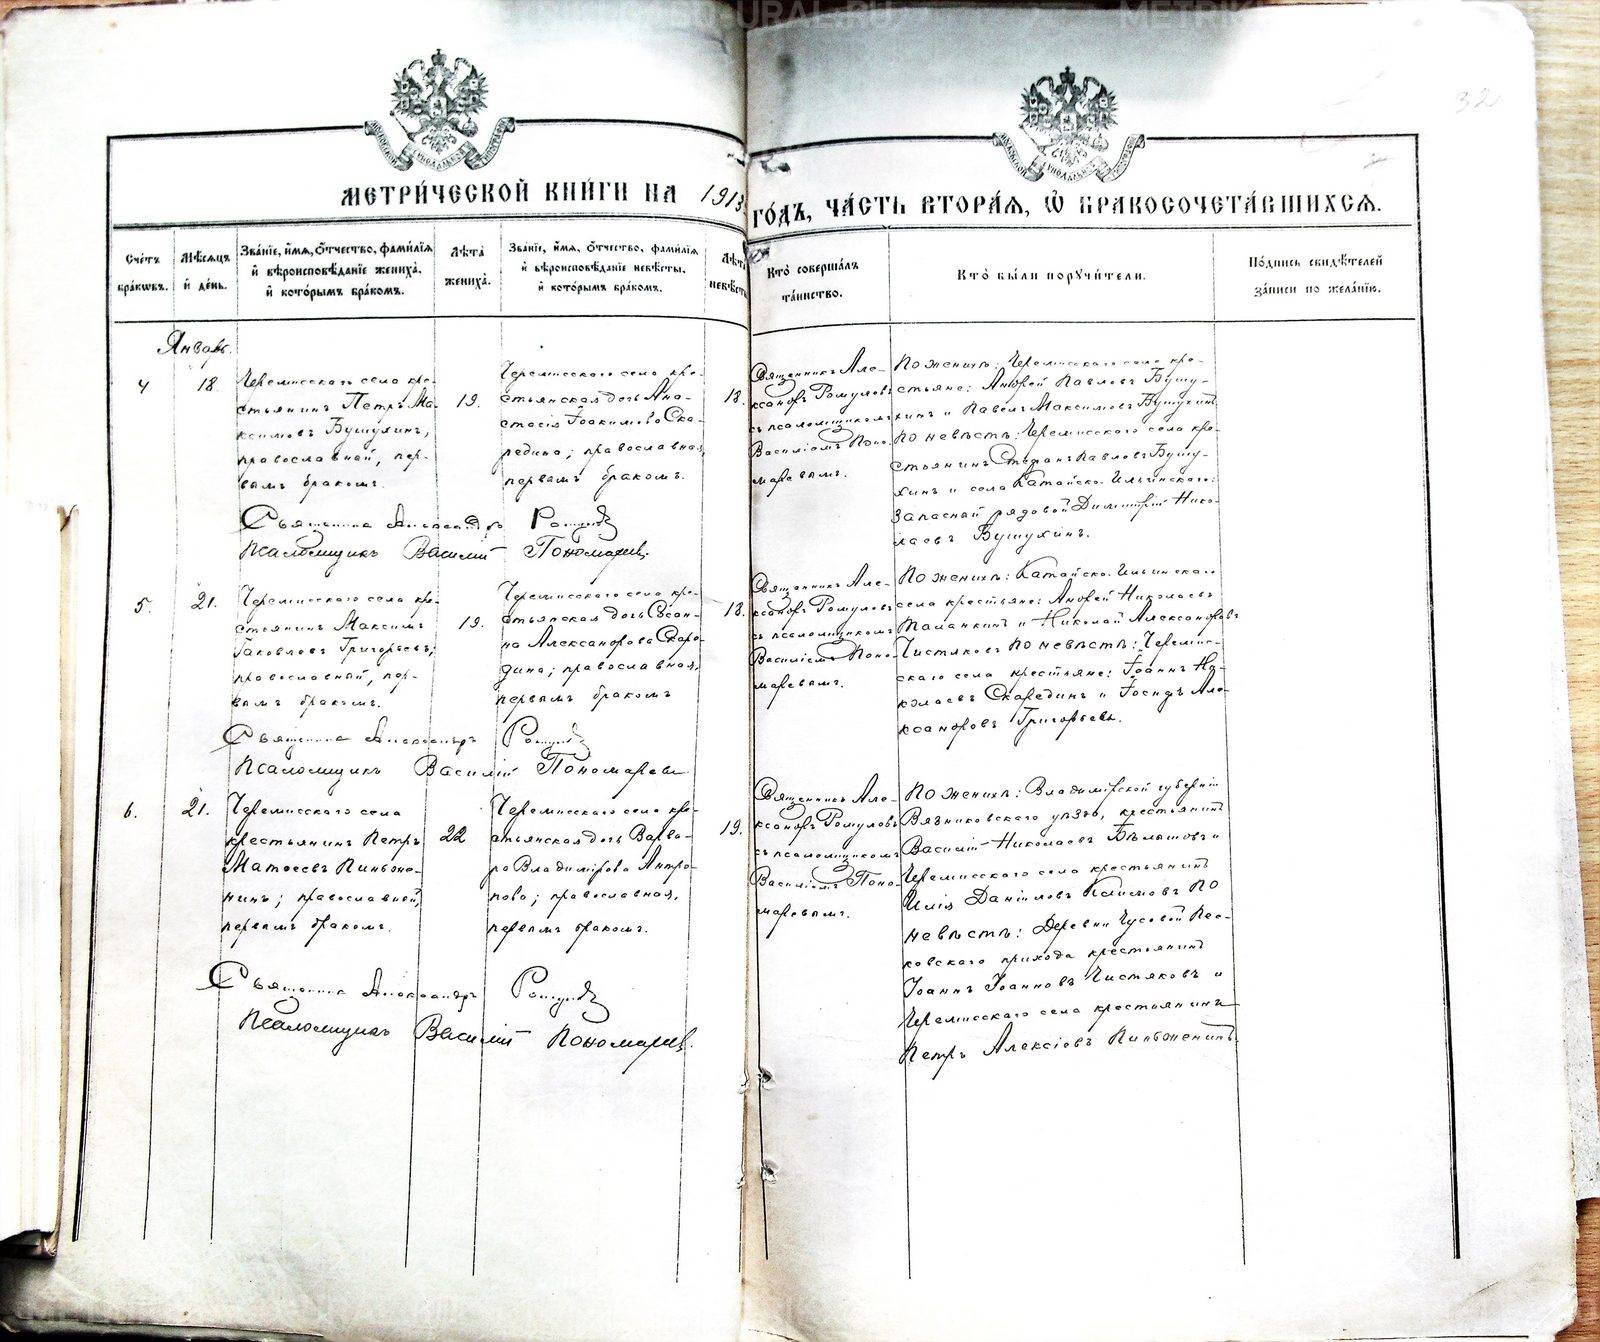 МЕТРИ́ЧЕСКОЙ КНИ́ГИ НА 1913
ГО́ДЪ, ЧА́СТЬ ВТОРА́Я, Ѽ БРАКОСОЧЕТА́ВШИХСЯ.
32
Сче́тъ бра́кѡвъ.
Мѣ́сяцъ и́ де́нь.
Зва́нїе, и́мя, ѻ́тчество, фами́лїя и́ вѣроисповѣ́данїе жениха̀, и́ кото́рымъ бра́комъ.
Лѣ́та жениха̀.
Зва́нїе, и́мя, ѻ́тчество, фами́лїя и́ вѣроисповѣ́данїе невѣ́сты, и́ кото́рымъ бра́комъ.
Лѣ́та невѣ́сты
Кто̀ соверша́лъ та́инство.
Кто̀ бы́ли порꙋчи́тели.
По́дпись свидѣ́телей за́писи по жела́нїю.
Январь.
4
18
Черемисского села кре-
стьянинъ Петръ Ма-
ксимовъ Бушухинъ,
православный, пер-
вымъ бракомъ.
19.
Черемисского села кре-
стьянская дочь Ана-
стасія Іоакимова Ска-
редина; православная,
первымъ бракомъ.
18.
Священникъ Але-
ксандръ Ромуловъ
съ псаломщикомъ
Василіемъ Поно-
маревымъ.
По женихѣ: Черемисского села кре-
стьяне: Андрей Павловъ Бушу-
хинъ и Павелъ Максимовъ Бушухинъ.
По невѣстѣ: Черемисского села кре-
стьянинъ Стефанъ Павловъ Бушу-
хинъ и села Катайско-Ильинского:
запасный рядовой Димитрій Нико-
лаевъ Бушухинъ.
Священникъ Александръ Ромуловъ
Псаломщикъ Василій Пономаревъ.
5.
21.
Черемисского села кре-
стьянинъ Максимъ
Іаковлевъ Григорьевъ;
православный, пер-
вымъ бракомъ.
19.
Черемисского села кре-
стьянская дочь Сусан-
на Александрова Скаре-
дина; православная,
первымъ бракомъ
18.
Священникъ Але-
ксандръ Ромуловъ
съ псаломщикомъ
Василіемъ Поно-
маревымъ.
По женихѣ: Катайско-Ильинского
села крестьяне: Андрей Николаевъ
Паланкинъ и Николай Александровъ
Чистяковъ По невѣстѣ: Черемис-
скаго села крестьяне: Іоаннъ Ни-
колаевъ Скарединъ и Іосифъ Але-
ксандровъ Григорьевъ.
Священникъ Александръ Ромуловъ
Псаломщикъ Василій Пономаревъ
6.
21.
Черемисского села
крестьянинъ Петръ
Матѳеевъ Пинжени-
нинъ; православный,
первымъ бракомъ.
22
Черемисского села кре-
стьянская дочь Варва-
ра Владимірова Антро-
пова; православная,
первымъ бракомъ.
19.
Священникъ Але-
ксандръ Ромуловъ
съ псаломщикомъ
Василіемъ Поно-
маревымъ.
По женихѣ: Владимірской губерніи
Вязниковского уѣзда, крестьянинъ
Василій Николаевъ Бѣлашовъ и
Черемисского села крестьянинъ
Илія Даніиловъ Климовъ По
невѣстѣ: Деревни Чусовой
прихода крестьянинъ
Іоаннъ Іоанновъ Чистяковъ и
Черемисского села крестьянинъ
Петръ Алексіевъ Пинженинъ.
Священникъ Александръ Ромуловъ
Псаломщикъ Василій Пономаревъ.